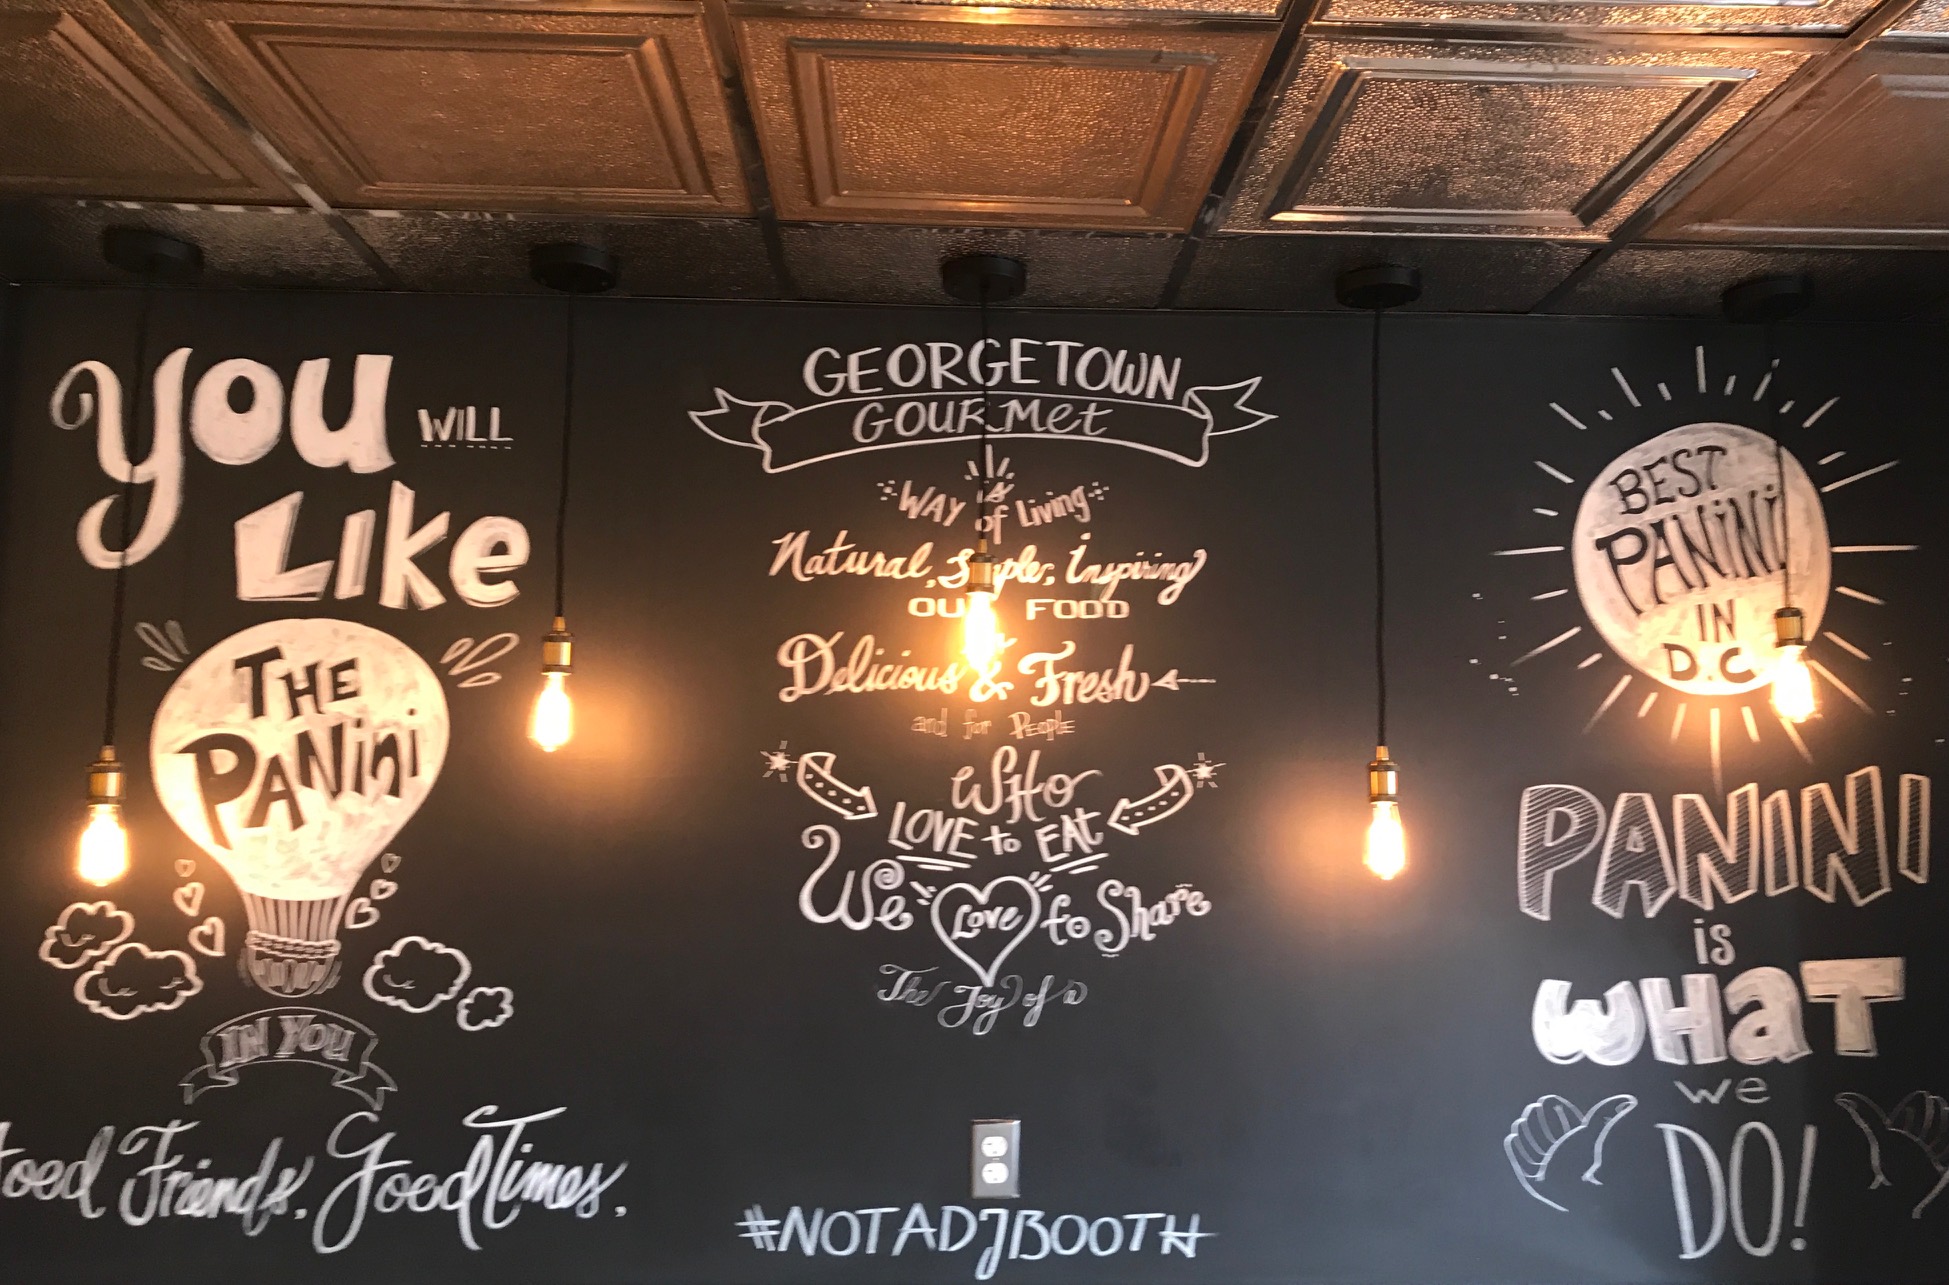 YOU WILL
LIKE
THE
PANini
IN YOU
Good Friends. Good Times.
GEORGETOWN
GOURMet
WAY is of Living
Natural, Simple, Inspiring
OUR FOOD
Delicious & Fresh
and for People
WHO
LOVE to EAt
We Love to Share
The Joy of a
#NOTADJBOOTH
BEST
PANiNi
IN
D.C
PANINI
is
WHaT
we
DO!